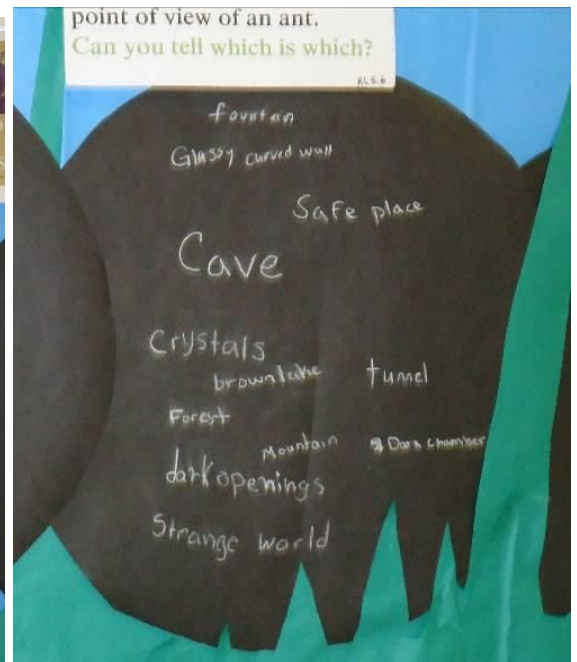 point of view of an ant.
Can you tell which is which?
RL5.6
fountain
Glassy curved wall
Safe place
Cave
Crystals
brown lake
tunnel
Forest
Mountain
Dark chamber
dark openings
Strange world